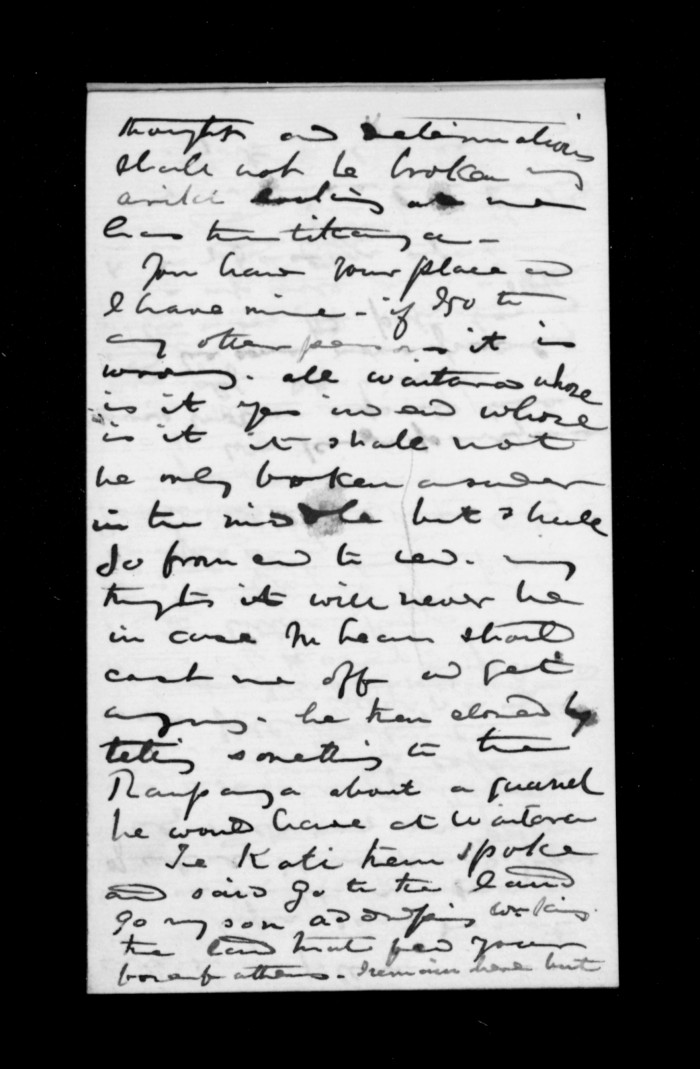 thoughts and determinations
shall not be broken my
ariki looking at me
has the tikanga -
You have your place and
I have mine - if I go to
any other person it is
wrong. all Waitara whose
is it yes indeed whose
is it it shall not
be only broken asunder
in the middle but shall
go from end to end. my
thoughts it will never be
in case McLean should
cast me off and get
angry. he then closed by
telling something to the
about a quarrel
he would have at Waitara
Te Kati then spoke
and said go to the land
go my son addressing
the land that fed your
forefathers. I remain here but